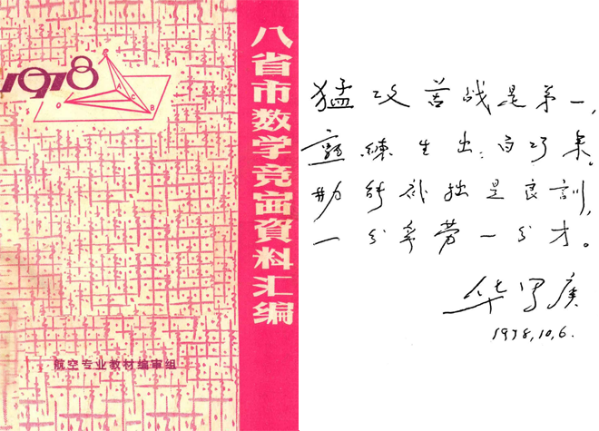 1978
八省市数学竞赛資料汇编
航空专业教材编审组
猛攻苦战是第一,
熟練生出百巧来。
勤能补拙是良訓,
一分辛劳一分才。
华罗庚
1978,10,6.